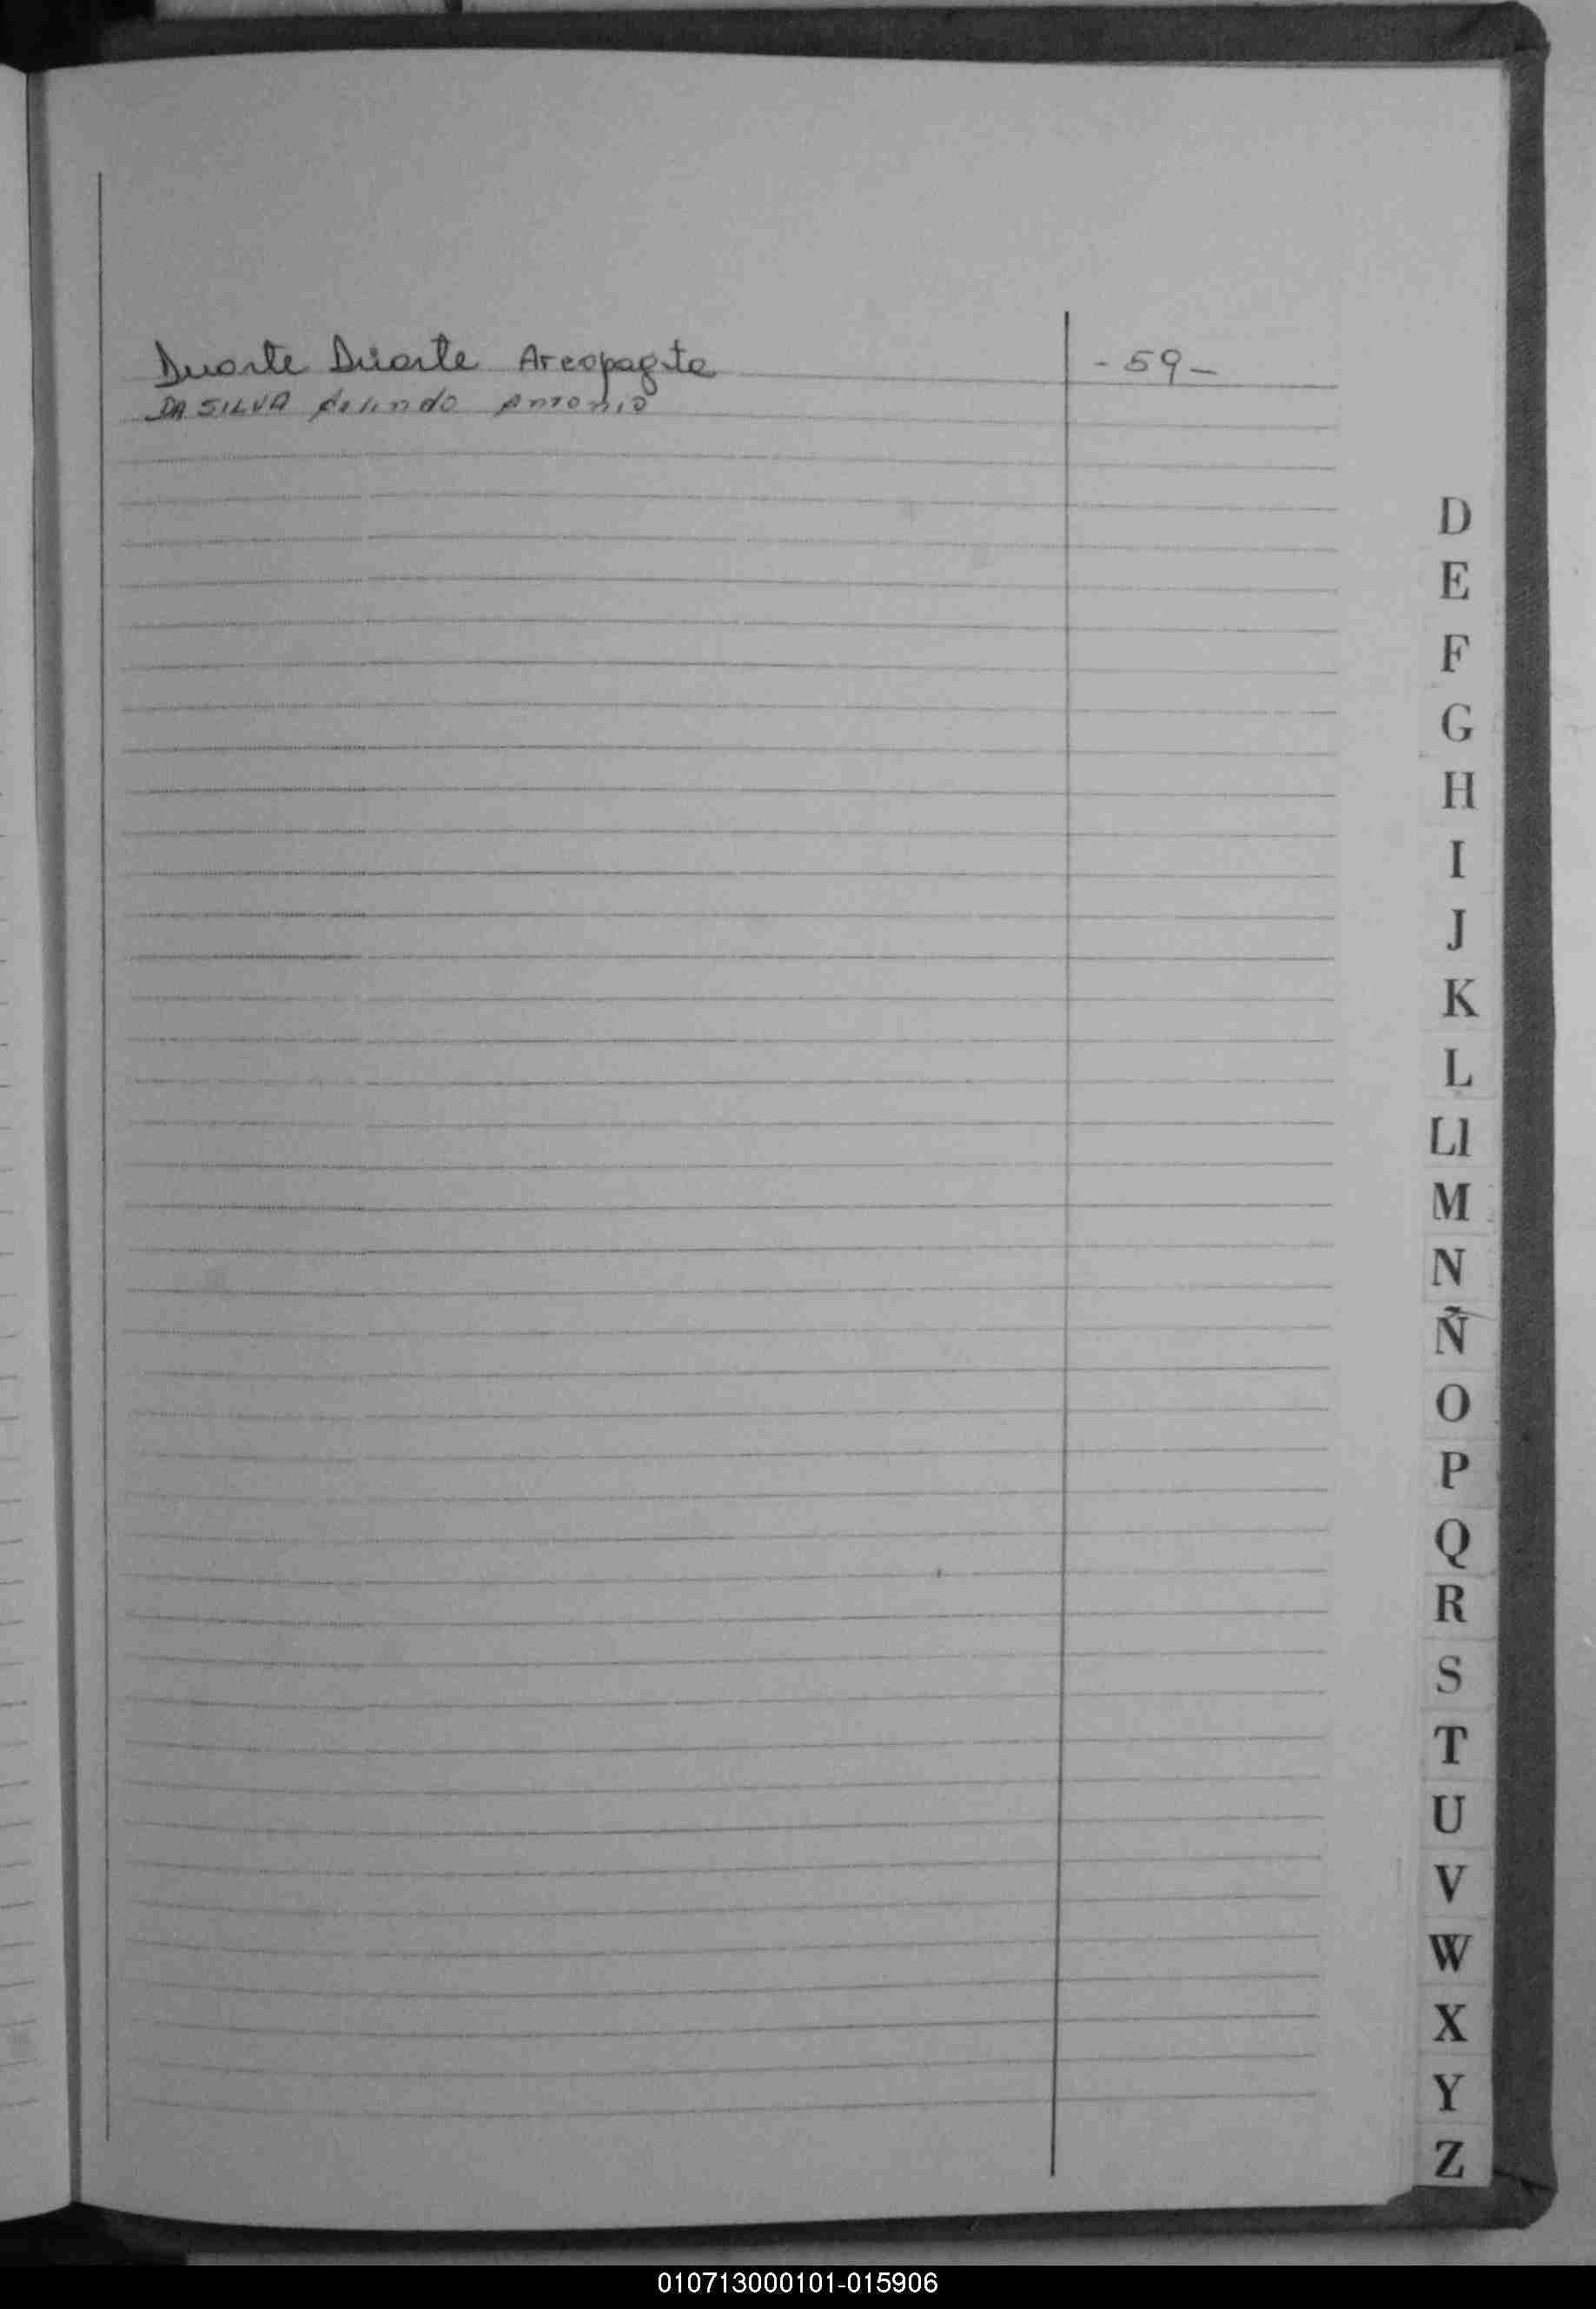 Duarte Duarte Areopagita - 59 -
DA SILVA Antonio
D
E
F
G
H
I
J
K
L
Ll
M
N
Ñ
O
P
Q
R
S
T
U
V
W
X
Y
Z
010713000101-015906